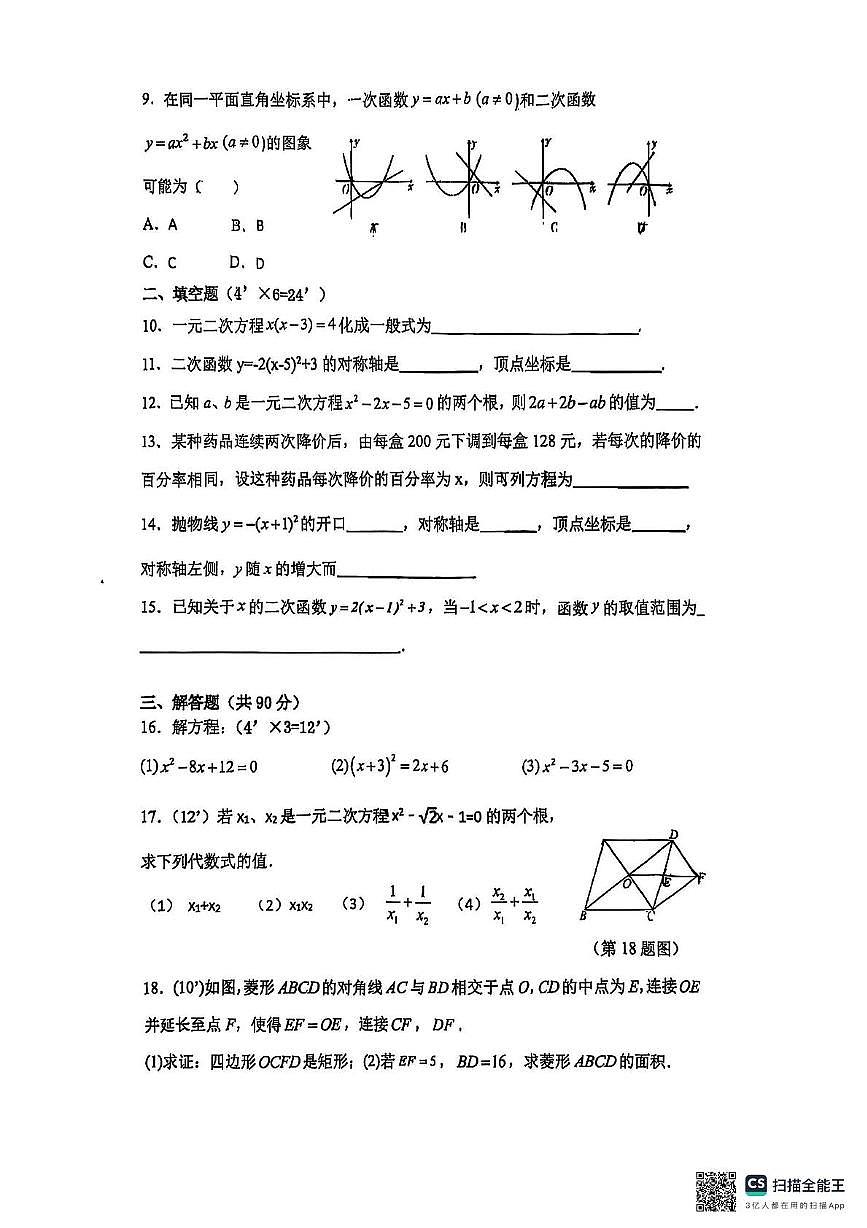 9. 在同一平面直角坐标系中，一次函数y=ax+b(a≠0)和二次函数
y=ax²+bx(a≠0)的图象
可能为（ ）
y y y y
O x O x O x O x
A B C D
A. A B. B
C. C D. D
二、填空题（4' ×6=24' ）
10. 一元二次方程x(x-3)=4化成一般式为____________.
11. 二次函数 y=-2(x-5)²+3 的对称轴是________，顶点坐标是________.
12. 已知 a、b 是一元二次方程x²-2x-5=0的两个根，则2a+2b-ab的值为____.
13、某种药品连续两次降价后，由每盒 200 元下调到每盒 128 元，若每次的降价的
百分率相同，设这种药品每次降价的百分率为 x，则可列方程为____________
14. 抛物线y=-(x+1)²的开口______，对称轴是______，顶点坐标是______，
对称轴左侧，y随x的增大而____________
15. 已知关于x的二次函数y=2(x-1)²+3，当-1<x<2时，函数y的取值范围为_
____________________.
三、解答题（共 90 分）
16. 解方程:（4' ×3=12'）
(1)x²-8x+12=0 (2)(x+3)²=2x+6 (3)x²-3x-5=0
17.（12'）若 x₁、x₂是一元二次方程x²-√2x-1=0 的两个根，
求下列代数式的值.
（1） x₁+x₂ （2）x₁x₂ （3） 1/x₁+1/x₂ （4）x₂/x₁+x₁/x₂
D
O E F
B C
（第 18 题图）
18. (10')如图,菱形ABCD的对角线AC与BD相交于点O,CD的中点为E,连接OE
并延长至点 F，使得EF=OE，连接CF，DF.
(1)求证：四边形OCFD是矩形；(2)若EF=5，BD=16，求菱形ABCD的面积.
CS 扫描全能王
3亿人都在用的扫描App